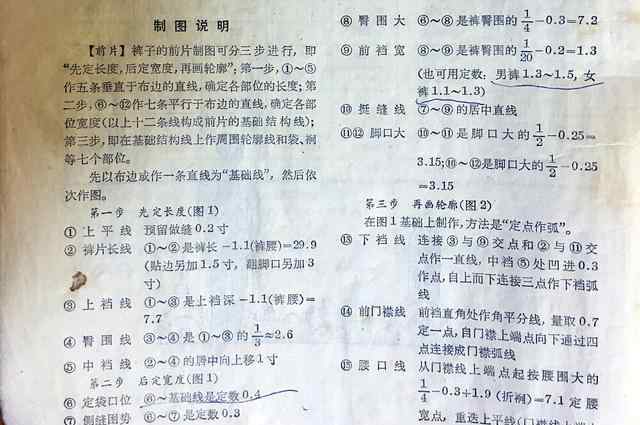 制图说明
【前片】裤子的前片制图可分三步进行，即
“先定长度，后定宽度，再画轮廓”：第一步，①～⑤
作五条垂直于布边的直线，确定各部位的长度；第
二步，⑥～⑫作七条平行于布边的直线，确定各部
位宽度(以上十二条线构成前片的基础结构线)；
第三步，即在基础结构线上作周围轮廓线和袋、裥
等七个部位。
先以布边或作一条直线为“基础线”，然后依
次作图。
第一步 先定长度(图1)
① 上平线 预留做缝0.2寸
② 裤片长线 ①～②是裤长－1.1(裤腰)=29.9
(贴边另加1.5寸，翻脚口另加3
寸)
③ 上裆线 ①～③是上裆深－1.1(裤腰)=
7.7
④ 臀围线 ③～④是①～③的1/3≈2.6
⑤ 中裆线 ②～④的居中向上移1寸
第二步 后定宽度(图1)
⑥ 定袋口位 ⑥～基础线是定数0.4
⑦ 侧缝困势 ⑥～⑦是定数0.3
⑧ 臀围大 ⑥～⑧是裤臀围的1/4－0.3=7.2
⑨ 前裆宽 ⑧～⑨是裤臀围的1/20－0.2=1.3
(也可用定数：男裤1.3～1.5，女
裤1.1～1.3)
⑩ 挺缝线 ⑦～⑨的居中直线
⑪⑫ 脚口大 ⑩～⑪是脚口大的1/2－0.25=
3.15；⑩～⑫是脚口大的1/2－0.25
=3.15
第三步 再画轮廓(图2)
在图1基础上制作，方法是“定点作弧”。
⑬ 下裆线 连接③与⑨交点和②与⑪交
点作一直线，中裆⑤处凹进0.3
作点，自上而下连接三点作下裆弧
线
⑭ 前门襟线 前裆直角处作角平分线，量取0.7
定一点，自门襟上端点向下通过四
点连接成门襟弧线
⑮ 腰口线 从门襟线上端点起按腰围大的
1/4－0.3+1.9(折裥)=7.1定腰
宽点，重选上平线(门襟线上端